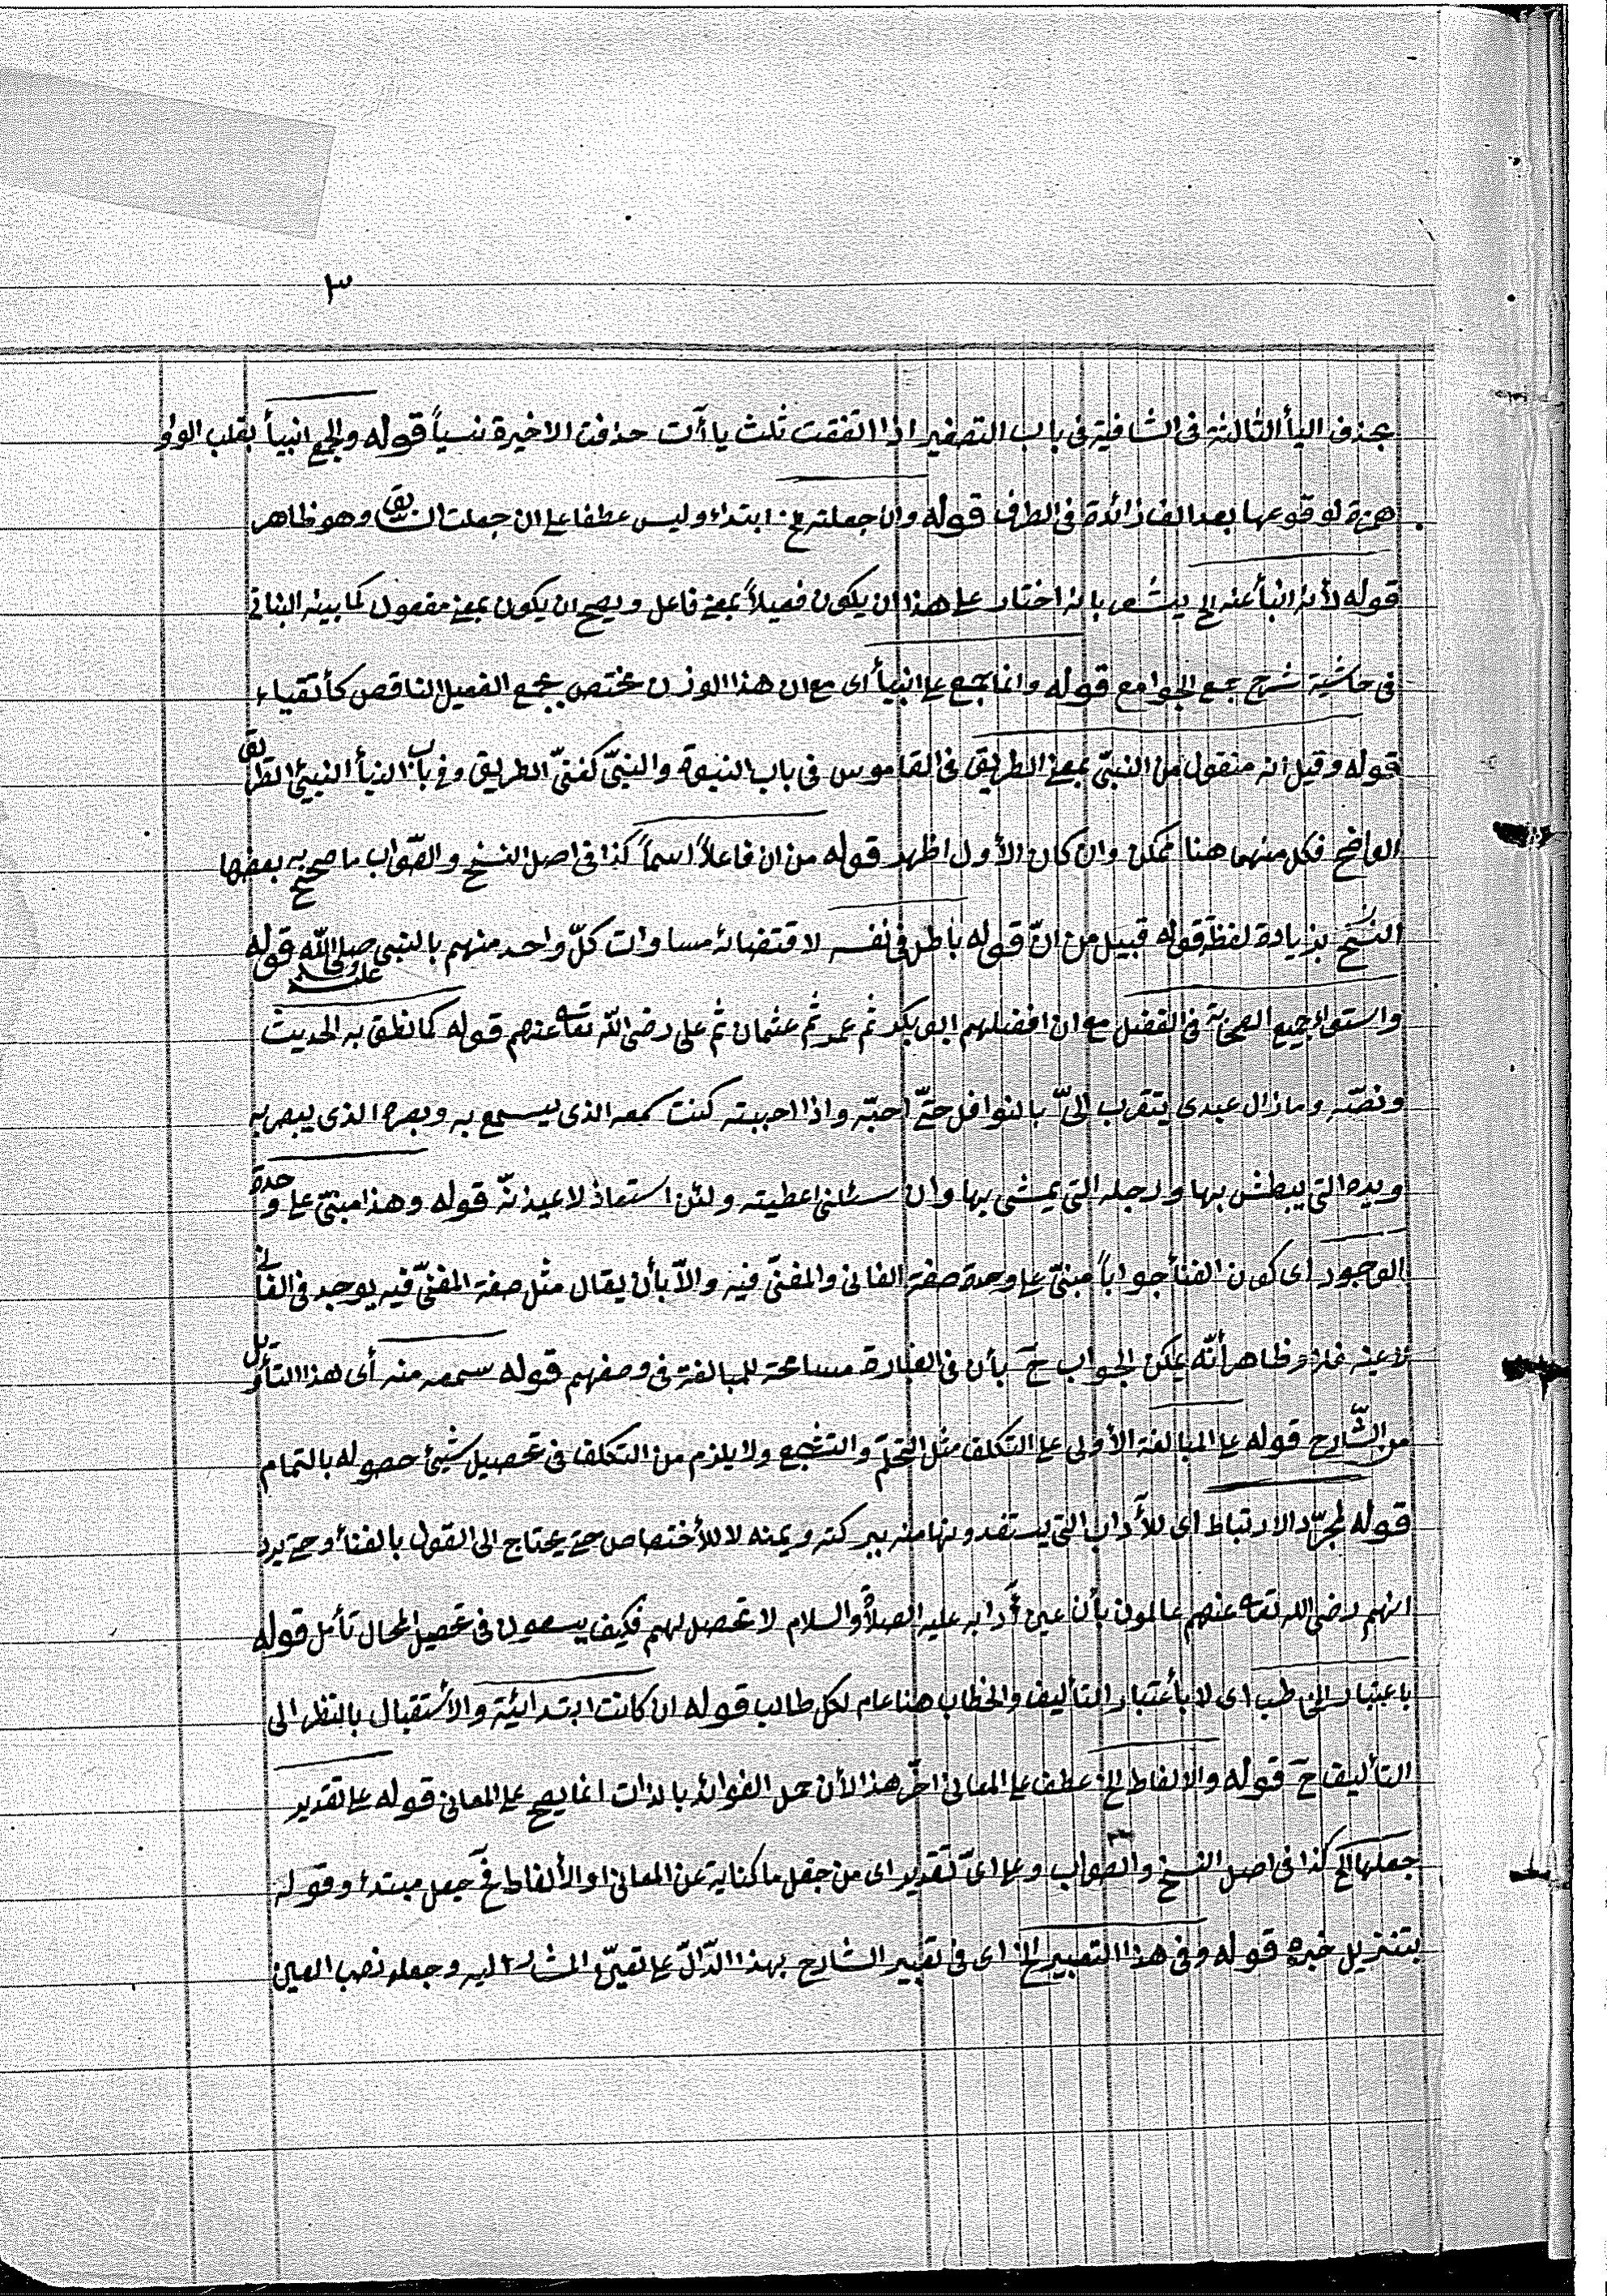 ٣
بحذف اليأ الثالثة فى الشافية فى باب التصغير اذا اتفقت ثلث ياآت حذفت الاخيرة نسياً قوله والجمع انبيأ بقلب الواو
همزة لوقوعها بعد الف زائدة فى الطرف قوله وان جعلته الخ ابتداء وليس عطفا على ان جعلت السابق وهو ظاهر
قوله لأنه انبأ عنه الخ يشعر بانه اختار على هذا ان يكون فعيلاً بمعنى فاعل ويصح ان يكون بمعنى مفعول كما بينه البنانى
فى حاشية شرح جمع الجوامع قوله وانما جمع على انبيأ اى مع ان هذا الوزن مختص بجمع الفعيل الناقص كأتقياء
قوله وقيل انه منقول من النبىّ بمعنى الطريق فى القاموس فى باب النبوة والنبىّ كغنىّ الطريق وفى باب النبأ النبيئ الطريق
الواضح فكل منهما هنا ممكن وان كان الأول اظهر قوله من ان فاعلاً اسماً كذا فى اصل النسخ والصّواب ما صحح به بعضها
النسخ بزيادة لفظ قوله قبيل من انّ قوله باطل فى نفسه لاقتضائه مساوات كلّ واحد منهم بالنبى صلى الله عليه وسلم قوله
واستواء جميع الصحابة فى الفضل مع ان افضلهم ابو بكر ثم عمر ثم عثمان ثم على رضى اللّه تعا عنهم قوله كما نطق به الحديث
ونصّه وما زال عبدى يتقرب الىّ بالنوافل حتّى احبّه واذا احببته كنت سمعه الذى يسمع به وبصره الذى يبصر به
ويده التى يبطش بها ورجله التى يمشى بها وان سئلنى اعطيته ولئن استعاذ لاعيذنّه قوله وهذا مبنىّ على وحدة
الوجود اى كون الفنأ جواباً مبنىّ على وحدة صفة الفانى والمفنىّ فيه والاّ بأن يقال مثل صفة المفنىّ فيه يوجد فى الفانى
لا عينه فلا وظاهر أنّه يمكن الجواب ح بأن فى العبارة مسامحة للمبالغة فى وصفهم قوله سمعه منه أى هذا التأويل
من الشّارح قوله على المبالغة الأولى على التكلف مثل التحلم والتشجع ولا يلزم من التكلف فى تحصيل شيئ حصوله بالتمام
قوله لمجرّد الارتباط اى للآداب التى يستفدونها منه ببركته ويمنه لا للأختصاص حتى يحتاج الى القول بالفنأ وحتى يرد
انهم رضى الله تعا عنهم عالمون بأن عين أدابه عليه الصلاة والسلام لا تحصل لهم فكيف يسعون فى تحصيل المحال تأمل قوله
باعتبار الخ طب اى لا بأعتبار التأليف والخطاب هنا عام لكل طالب قوله ان كانت ابتدائية والأستقبال بالنظر الى
التأليف ح قوله والالفاظ الخ عطف على المعانى اخّر هذا لأن حمل الفوائد بالذات انما يصح على المعانى قوله على تقدير
جعلها الخ كذا فى اصل النسخ والصواب وعلى اىّ تقدير اى من جعل ما كناية عن المعانى او الألفاظ فح جعل مبتدأ وقوله
بتنزيل خبره قوله وفى هذا التعبير الخ اى فى تعبير الشارح بهذا الدّالّ على تعيّن المشار اليه وجعله نصب العين